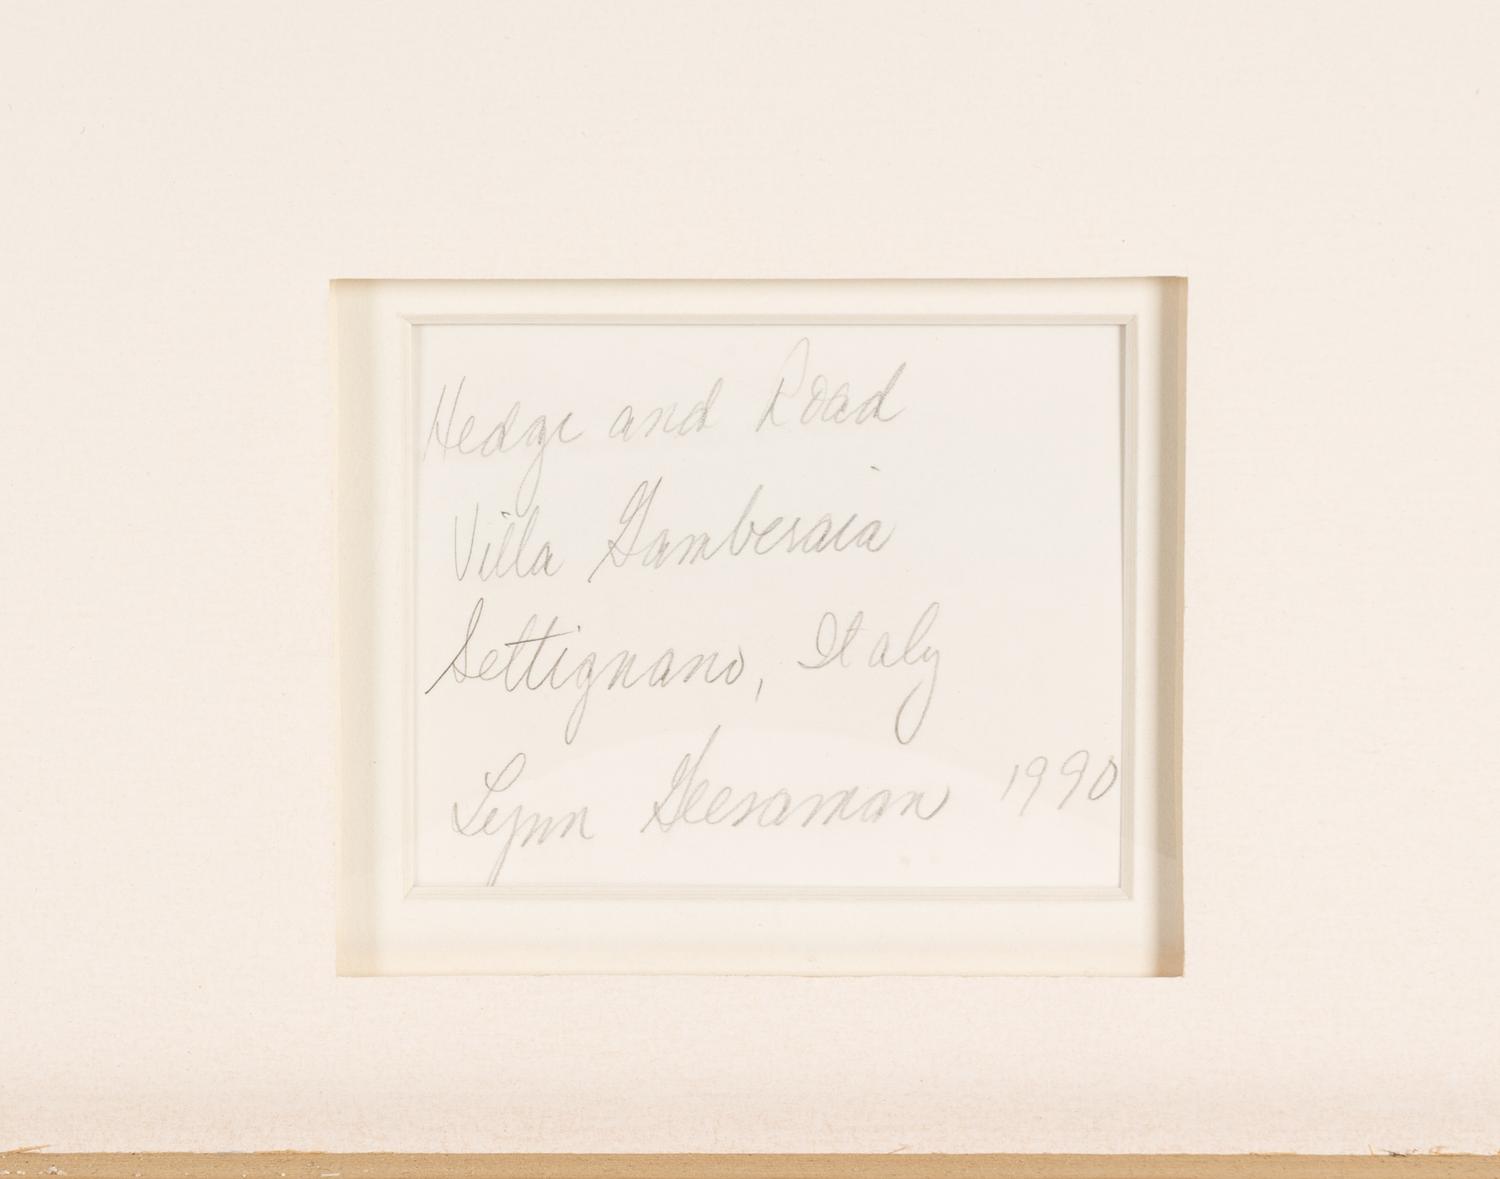 Hedge and Road
Villa Gamberaia
Settignano, Italy
Lynn Geesaman 1990